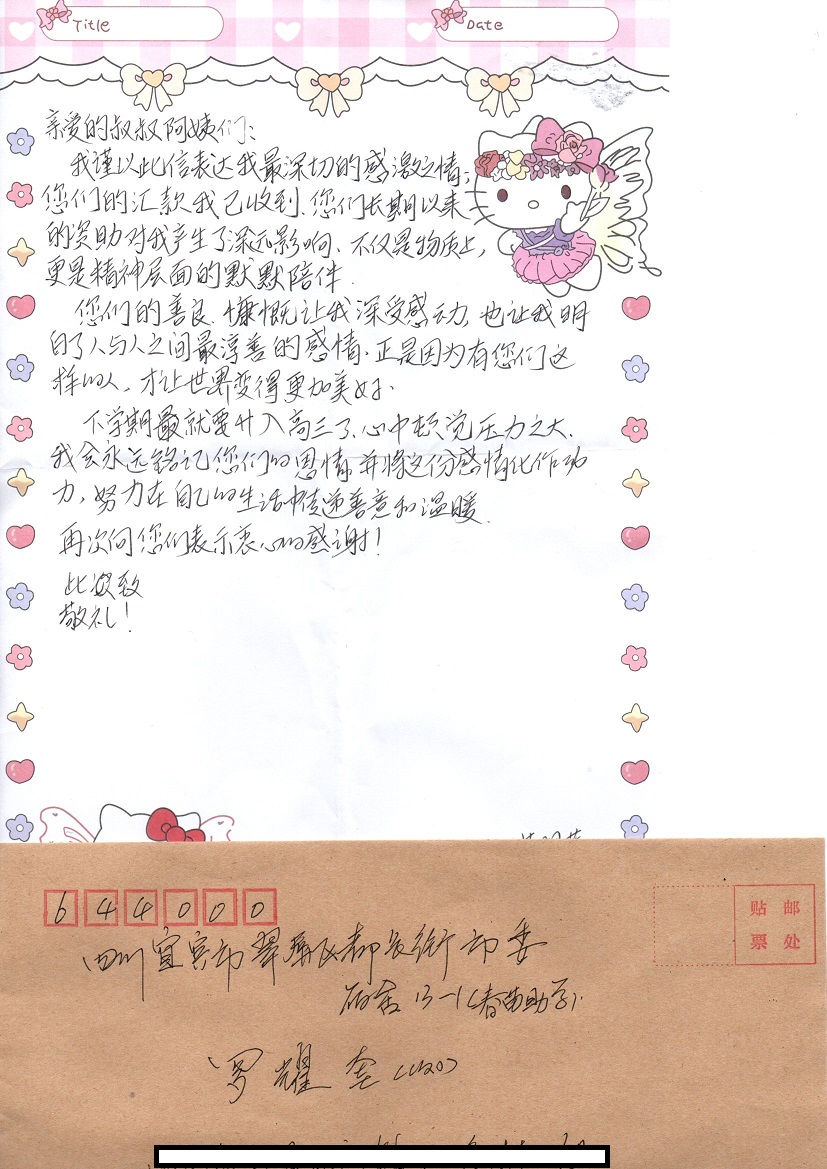 Title
Date
亲爱的叔叔阿姨们：
我谨以此信表达我最深切的感激之情，
您们的汇款我已收到、您们长期以来
的资助对我产生了深远影响、不仅是物质上，
更是精神层面的默默陪伴.
您们的善良、慷慨让我深受感动，也让我明
白了人与人之间最淳善的感情.正是因为有您们这
样的人，才让世界变得更加美好、
下学期就要升入高三了、心中顿觉压力之大、
我会永远铭记您们的恩情，并将这份感情化作动
力，努力在自己的生活中传递善意和温暖.
再次向您们表示衷心的感谢！
此致
敬礼！
644000
贴 邮
票 处
四川宜宾市翠屏区都长街市委
宿舍13-1(春苗助学)
罗耀奎